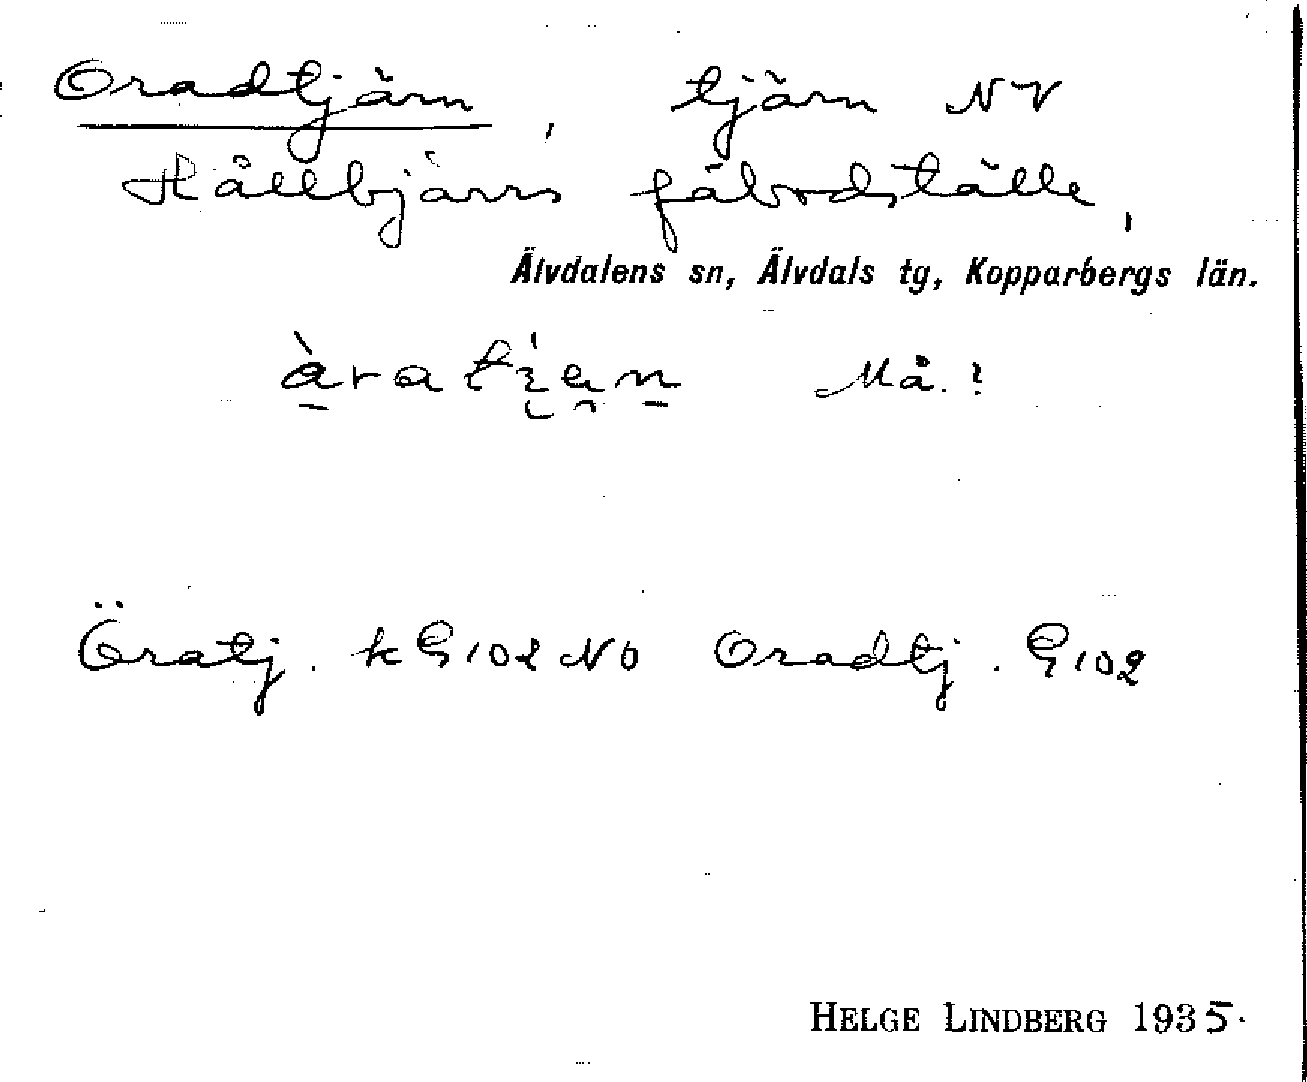 Oradtjärn, tjärn NV
Hållbjärns fäbodställe,
Älvdalens sn, Älvdals tg, Kopparbergs län.
Må.!
Öratj. k G102 NO Oradtj. G102
HELGE LINDBERG 1935.